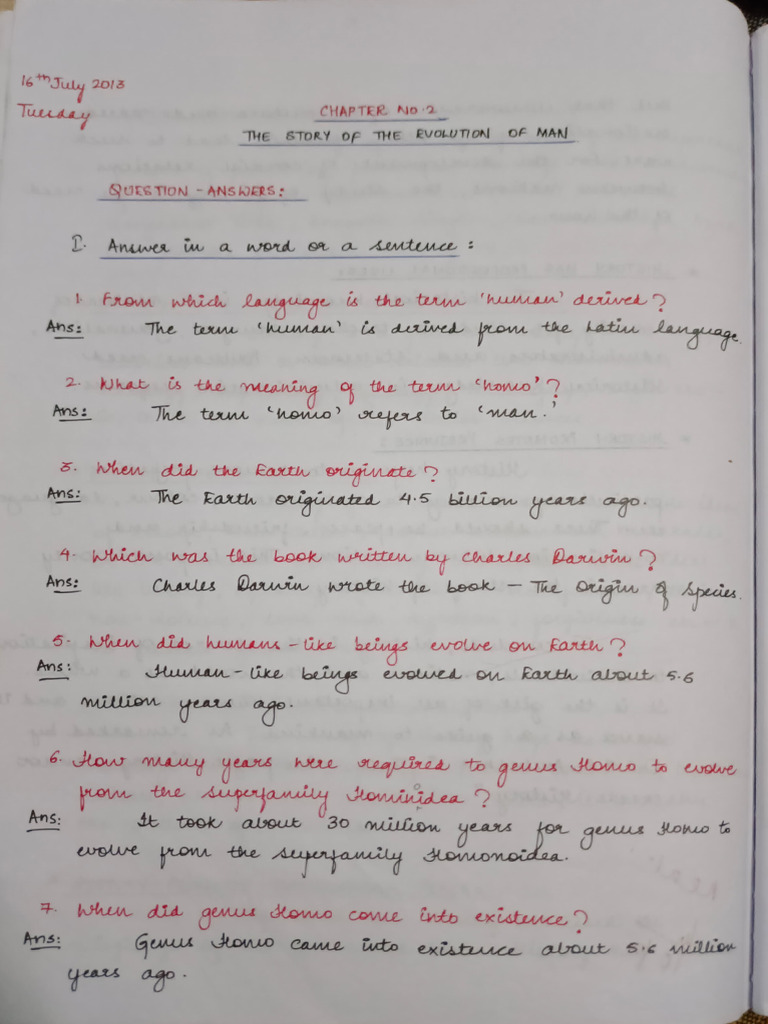 16th July 2013
Tuesday
CHAPTER NO.2
THE STORY OF THE EVOLUTION OF MAN
QUESTION - ANSWERS:
I. Answer in a word or a sentence :
1. From which language is the term 'human' derived ?
Ans: The term 'human' is derived from the Latin language.
2. What is the meaning of the term 'homo' ?
Ans: The term 'homo' refers to 'man.'
3. When did the Earth originate ?
Ans: The Earth originated 4.5 billion years ago.
4. Which was the book written by Charles Darwin ?
Ans: Charles Darwin wrote the book - The Origin of Species.
5. When did humans - like beings evolve on Earth ?
Ans: Human - like beings evolved on Earth about 5.6
million years ago.
6. How many years were required to genus Homo to evolve
from the superfamily Hominidea ?
Ans: It took about 30 million years for genus Homo to
evolve from the superfamily Homonoidea.
7. When did genus Homo come into existence ?
Ans: Genus Homo came into existence about 5.6 million
years ago.